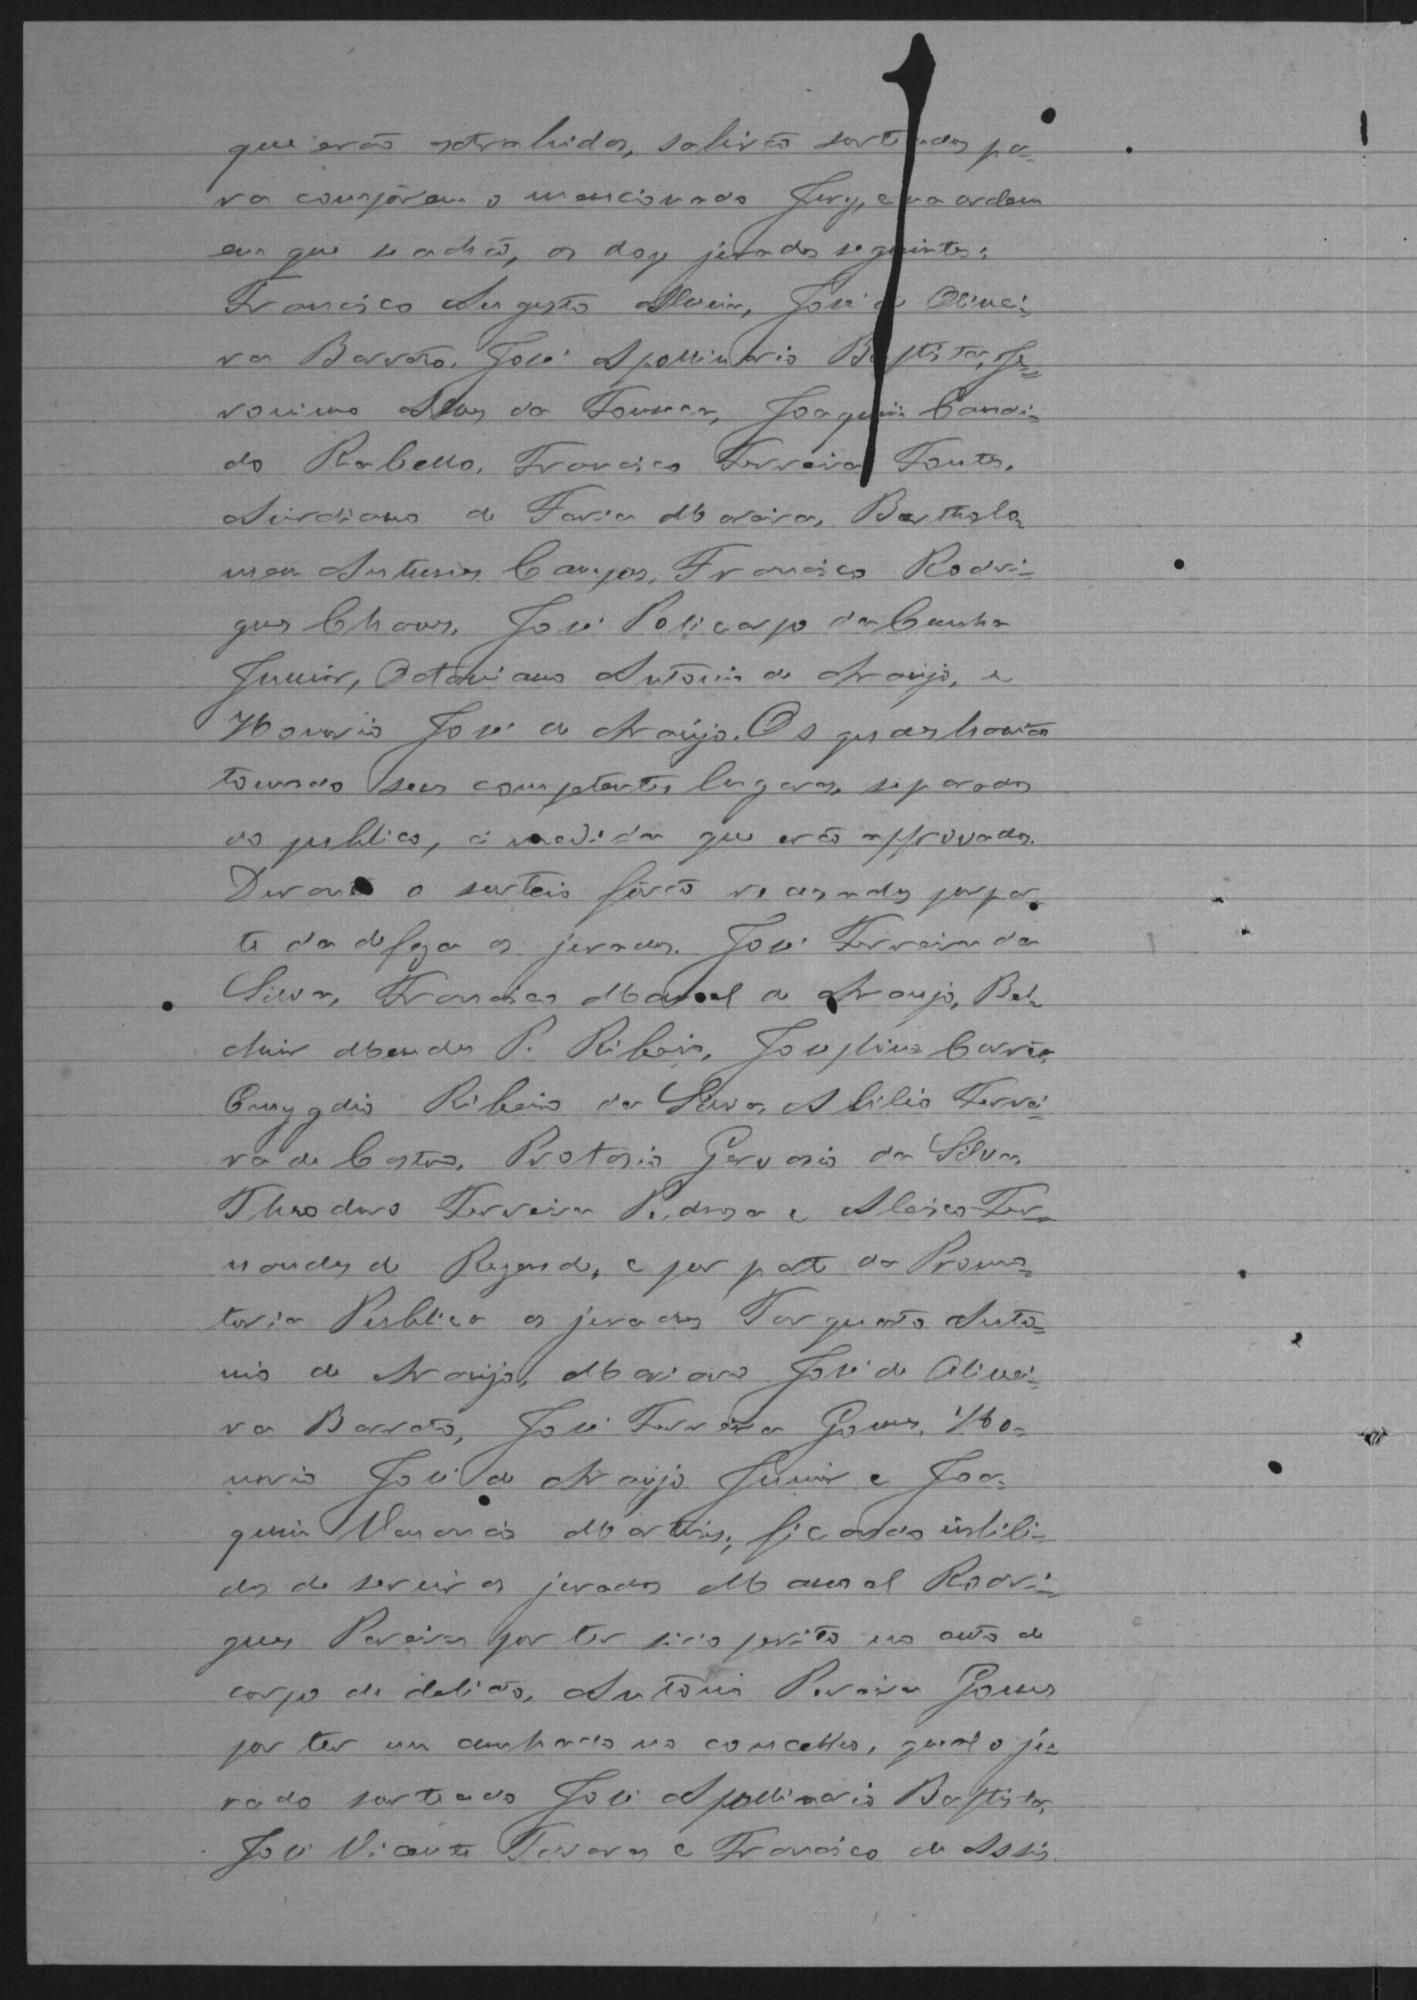 que erão extrahidas, sahirão sorteados pa-
ra comporem o mencionado Jury, e na ordem
em que se achão, os doze jurados seguintes:
Francisco Augusto Alvim, José de Olivei-
ra Barrão, José Apollinario Baptista, Je-
ronimo Alves da Fonseca, Joaquim Candi-
do Rabello, Francisco Ferreira Fontes,
de Faria Moreira, Bartholo-
meu Antunes Campos, Francisco Rodri-
gues Chaves, José Policarpo da Cunha
Junior, Octaviano Antonio de Araujo, e
Honorio José de Araújo. Os quaes havião
tomado seus competentes lugares, separados
do publico, á medida que erão approvados.
Durante o sorteio fôrão recusados por par-
te da defeza os jurados. José Ferreira da
Silva, Francisco Manoel de Araujo, Bel-
chior Mendes P. Ribeiro, Josephino Corrêa,
Emygdio Ribeiro da Silva, Abilio Ferrei-
ra de Castro, Protasio Gervasio da Silva,
Theodoro Ferreira Pedrosa e Aleixo Fer-
nandes de Rezende, e por parte da Promo-
toria Publica os jurados Torquato Anto-
nio de Araujo, Mariano José de Olivei-
ra Barrão, José Ferreira Gomes, Ho-
norio José de Araujo Junior e Joa-
quim Venancio Martins; ficando inhibi-
dos de servir os jurados Manoel Rodri-
gues Pereira por ter sido perito no auto de
corpo de delicto, Antonio Pereira Gomes
por ter um cunhado no concelho, qual o ju-
rado sorteado José Apollinario Baptista,
José Vicente Tavares e Francisco de Assis